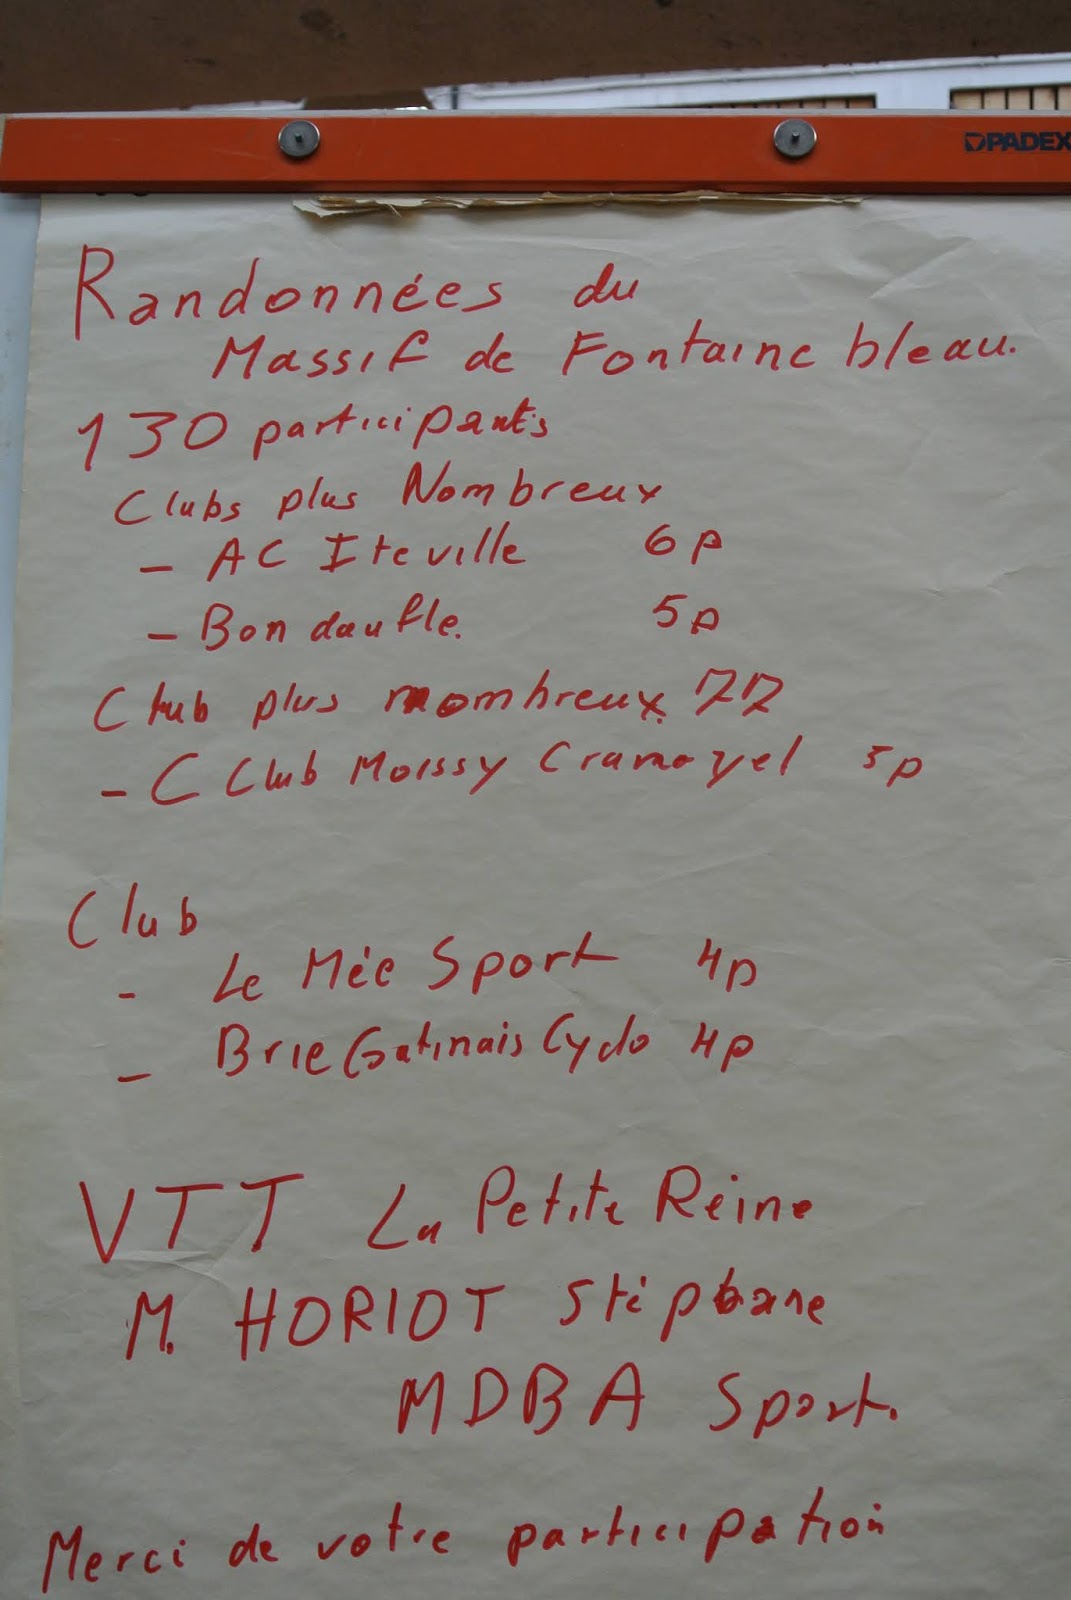 PADEX
Randonnées du
Massif de Fontainebleau.
130 participants
Clubs plus Nombreux
- AC Iteville 6p
- Bondoufle. 5p
Club plus nombreux 77
- C Club Moissy Cramayel 5p
Club
- Le Mée Sport 4p
- Brie Gatinais Cyclo 4p
VTT La Petite Reine
M. HORIOT Stéphane
MDBA Sport.
Merci de votre participation